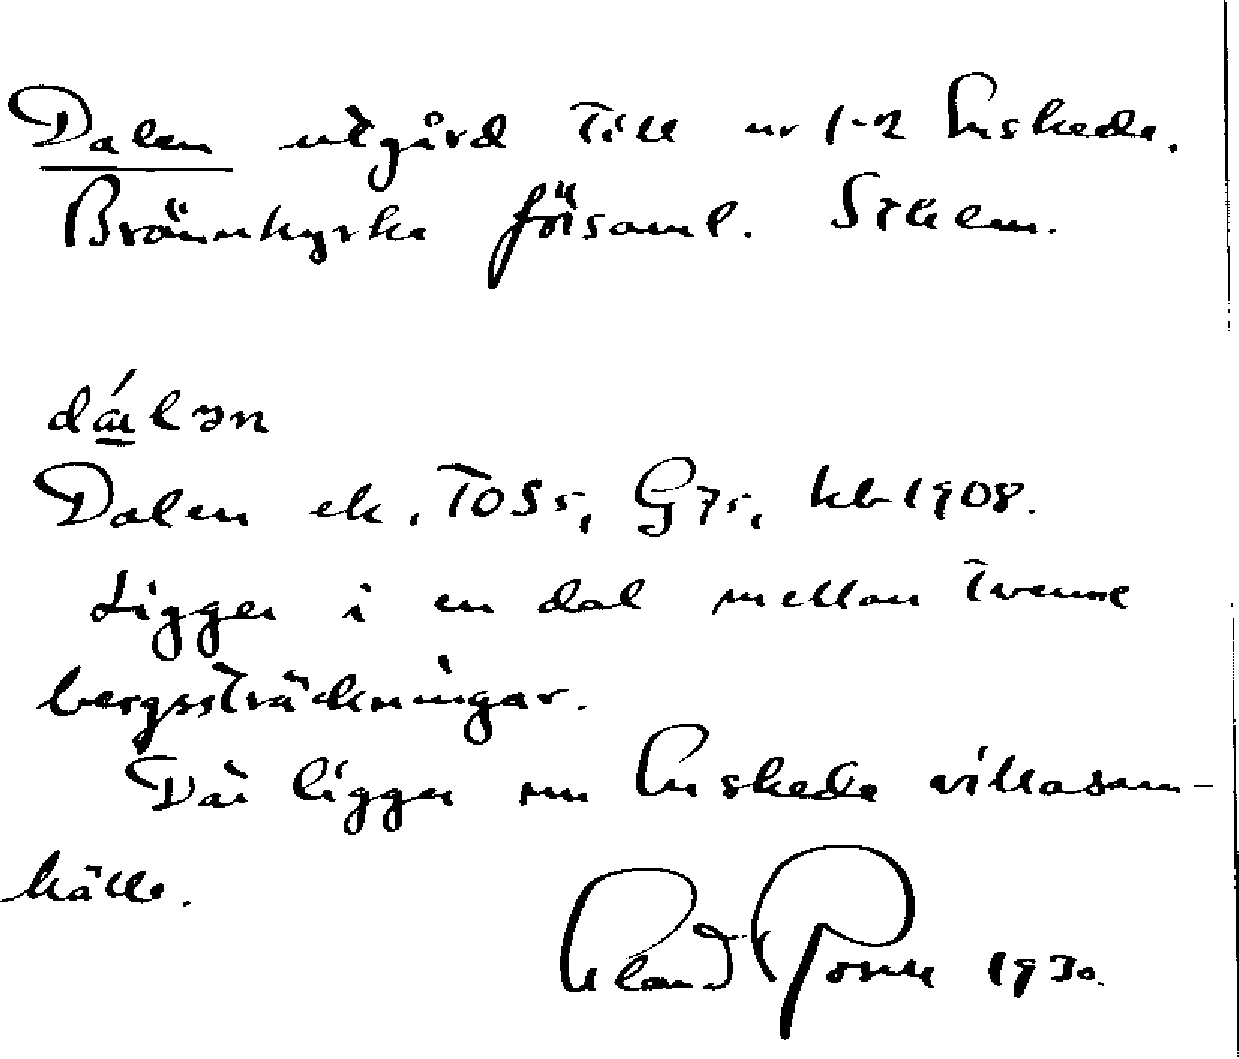 Dalen utgård till nr 1-2 Enskede.
Brännkyrka församl. Sthlm.
dálən
Dalen ek, TOS5, G75, hb 1908.
Ligger i en dal mellan tvenne
bergssträckningar.
Där ligger nu Enskede villasam-
hälle.
1930.